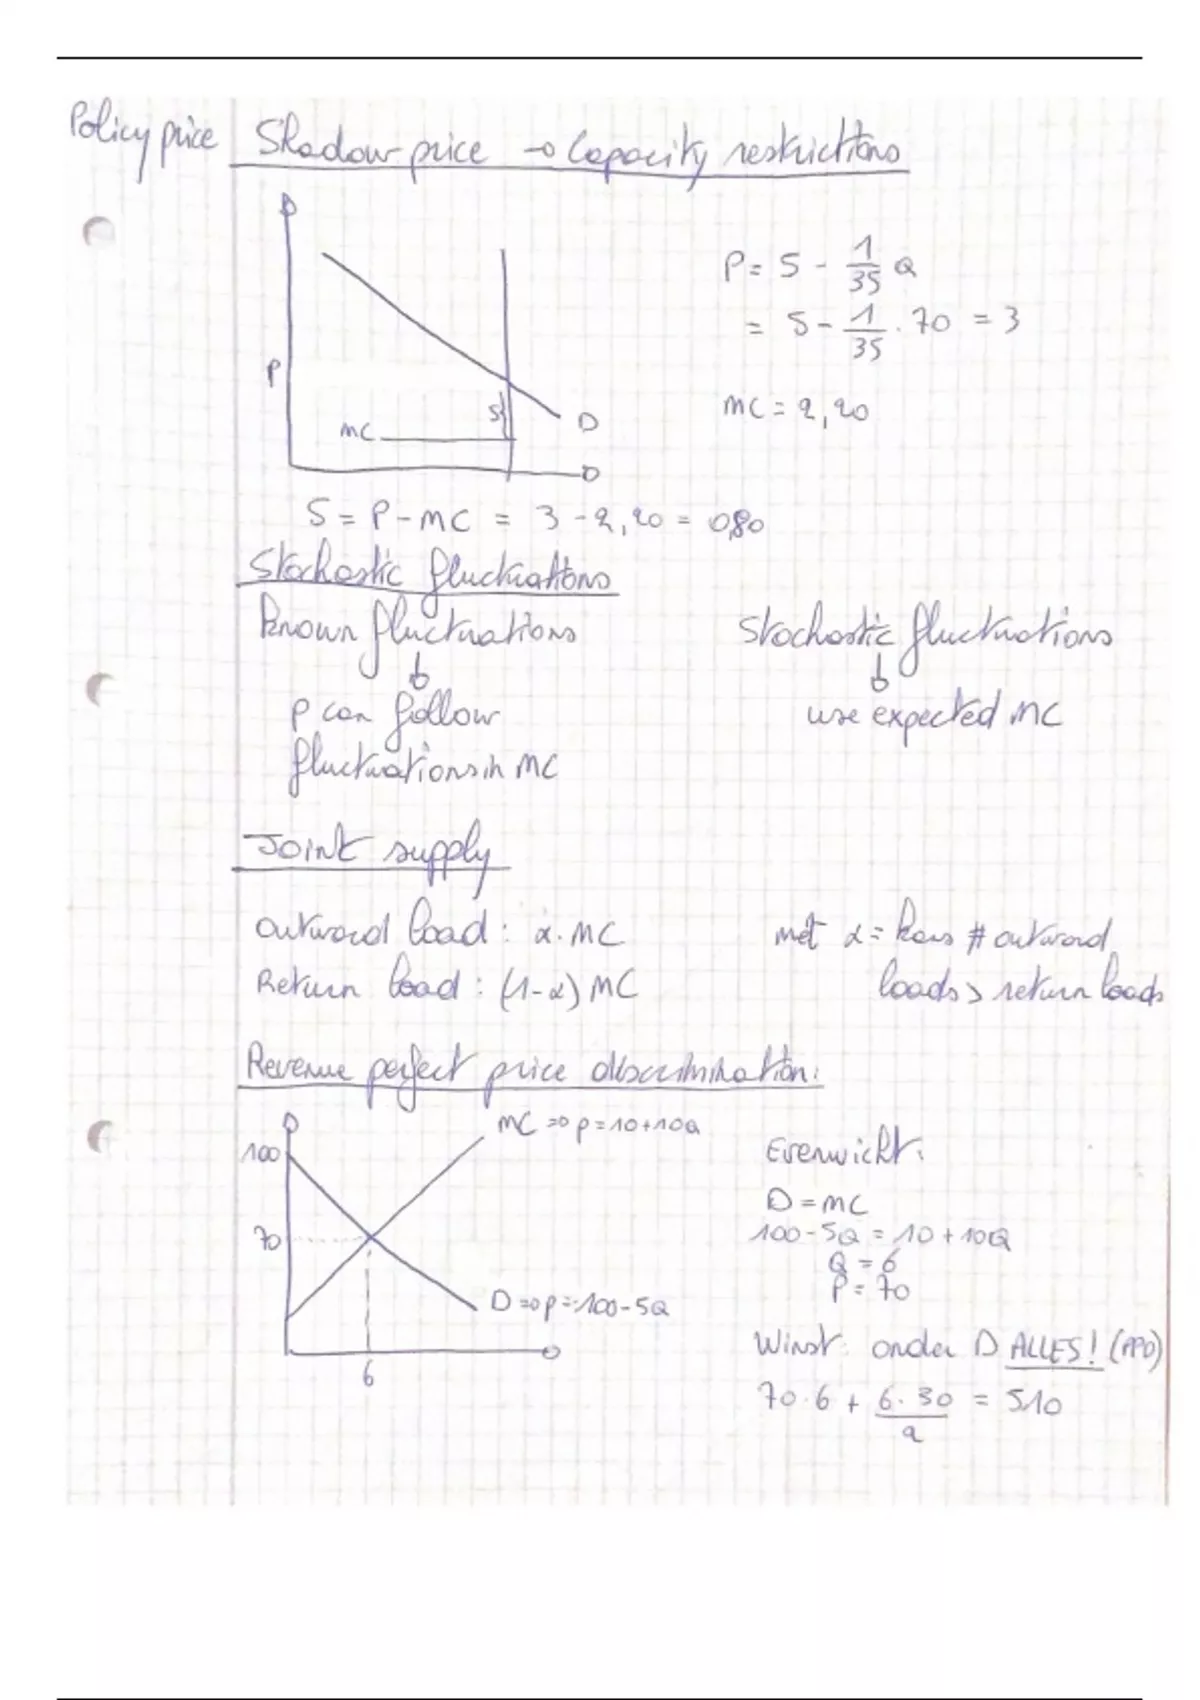 Policy price
Shadow price → Capacity restrictions
P
P = 5 - 1/35 Q
= 5 - 1/35 . 70 = 3
MC = 2,20
S
D
MC
S = P - MC = 3 - 2,20 = 0,80
Stochastic fluctuations
Known fluctuations
Stochastic fluctuations
p can follow
use expected MC
fluctuations in MC
Joint supply
Outward load : α. MC
met α = kans # outward
Return load : (1-α) MC
loads > return loads
Revenue perfect price discrimination:
MC => p = 10+10Q
100
Evenwicht:
D = MC
100-5Q = 10+10Q
70
Q = 6
P = 70
D => p = 100-5Q
Winst: onder D ALLES! (PPD)
6
70.6 + 6.30/2 = 510